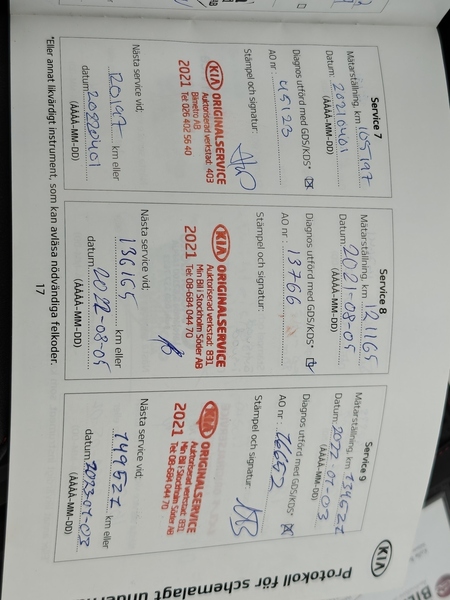 Protokoll för schemalagt underh
KIA
Service 7
Mätarställning, km 105197
Datum: 20210401
(ÅÅÅÅ-MM-DD)
Diagnos utförd med GDS/KDS*
AO nr: 45123
Stämpel och signatur:
KIA ORIGINALSERVICE
Auktoriserad verkstad: 403
2021 Bilmetro AB
Tel: 026 402 56 40
Nästa service vid;
km eller
datum: 20220401
(ÅÅÅÅ-MM-DD)
Service 8
Mätarställning, km 121165
Datum: 2021-08-05
(ÅÅÅÅ-MM-DD)
Diagnos utförd med GDS/KDS*
AO nr: 13766
Stämpel och signatur:
KIA ORIGINALSERVICE
Auktoriserad verkstad: 831
2021 Min Bil i Stockholm Söder AB
Tel: 08-684 044 70
Nästa service vid;
136165 km eller
datum: 2022-08-05
(ÅÅÅÅ-MM-DD)
Service 9
Mätarställning, km 134527
Datum: 2022-07-03
(ÅÅÅÅ-MM-DD)
Diagnos utförd med GDS/KDS*
AO nr: 16652
Stämpel och signatur:
KIA ORIGINALSERVICE
Auktoriserad verkstad: 831
2021 Min Bil i Stockholm Söder AB
Tel: 08-684 044 70
Nästa service vid;
149527 km eller
datum: 2023-07-03
(ÅÅÅÅ-MM-DD)
*Eller annat likvärdigt instrument, som kan avläsa nödvändiga felkoder.
17